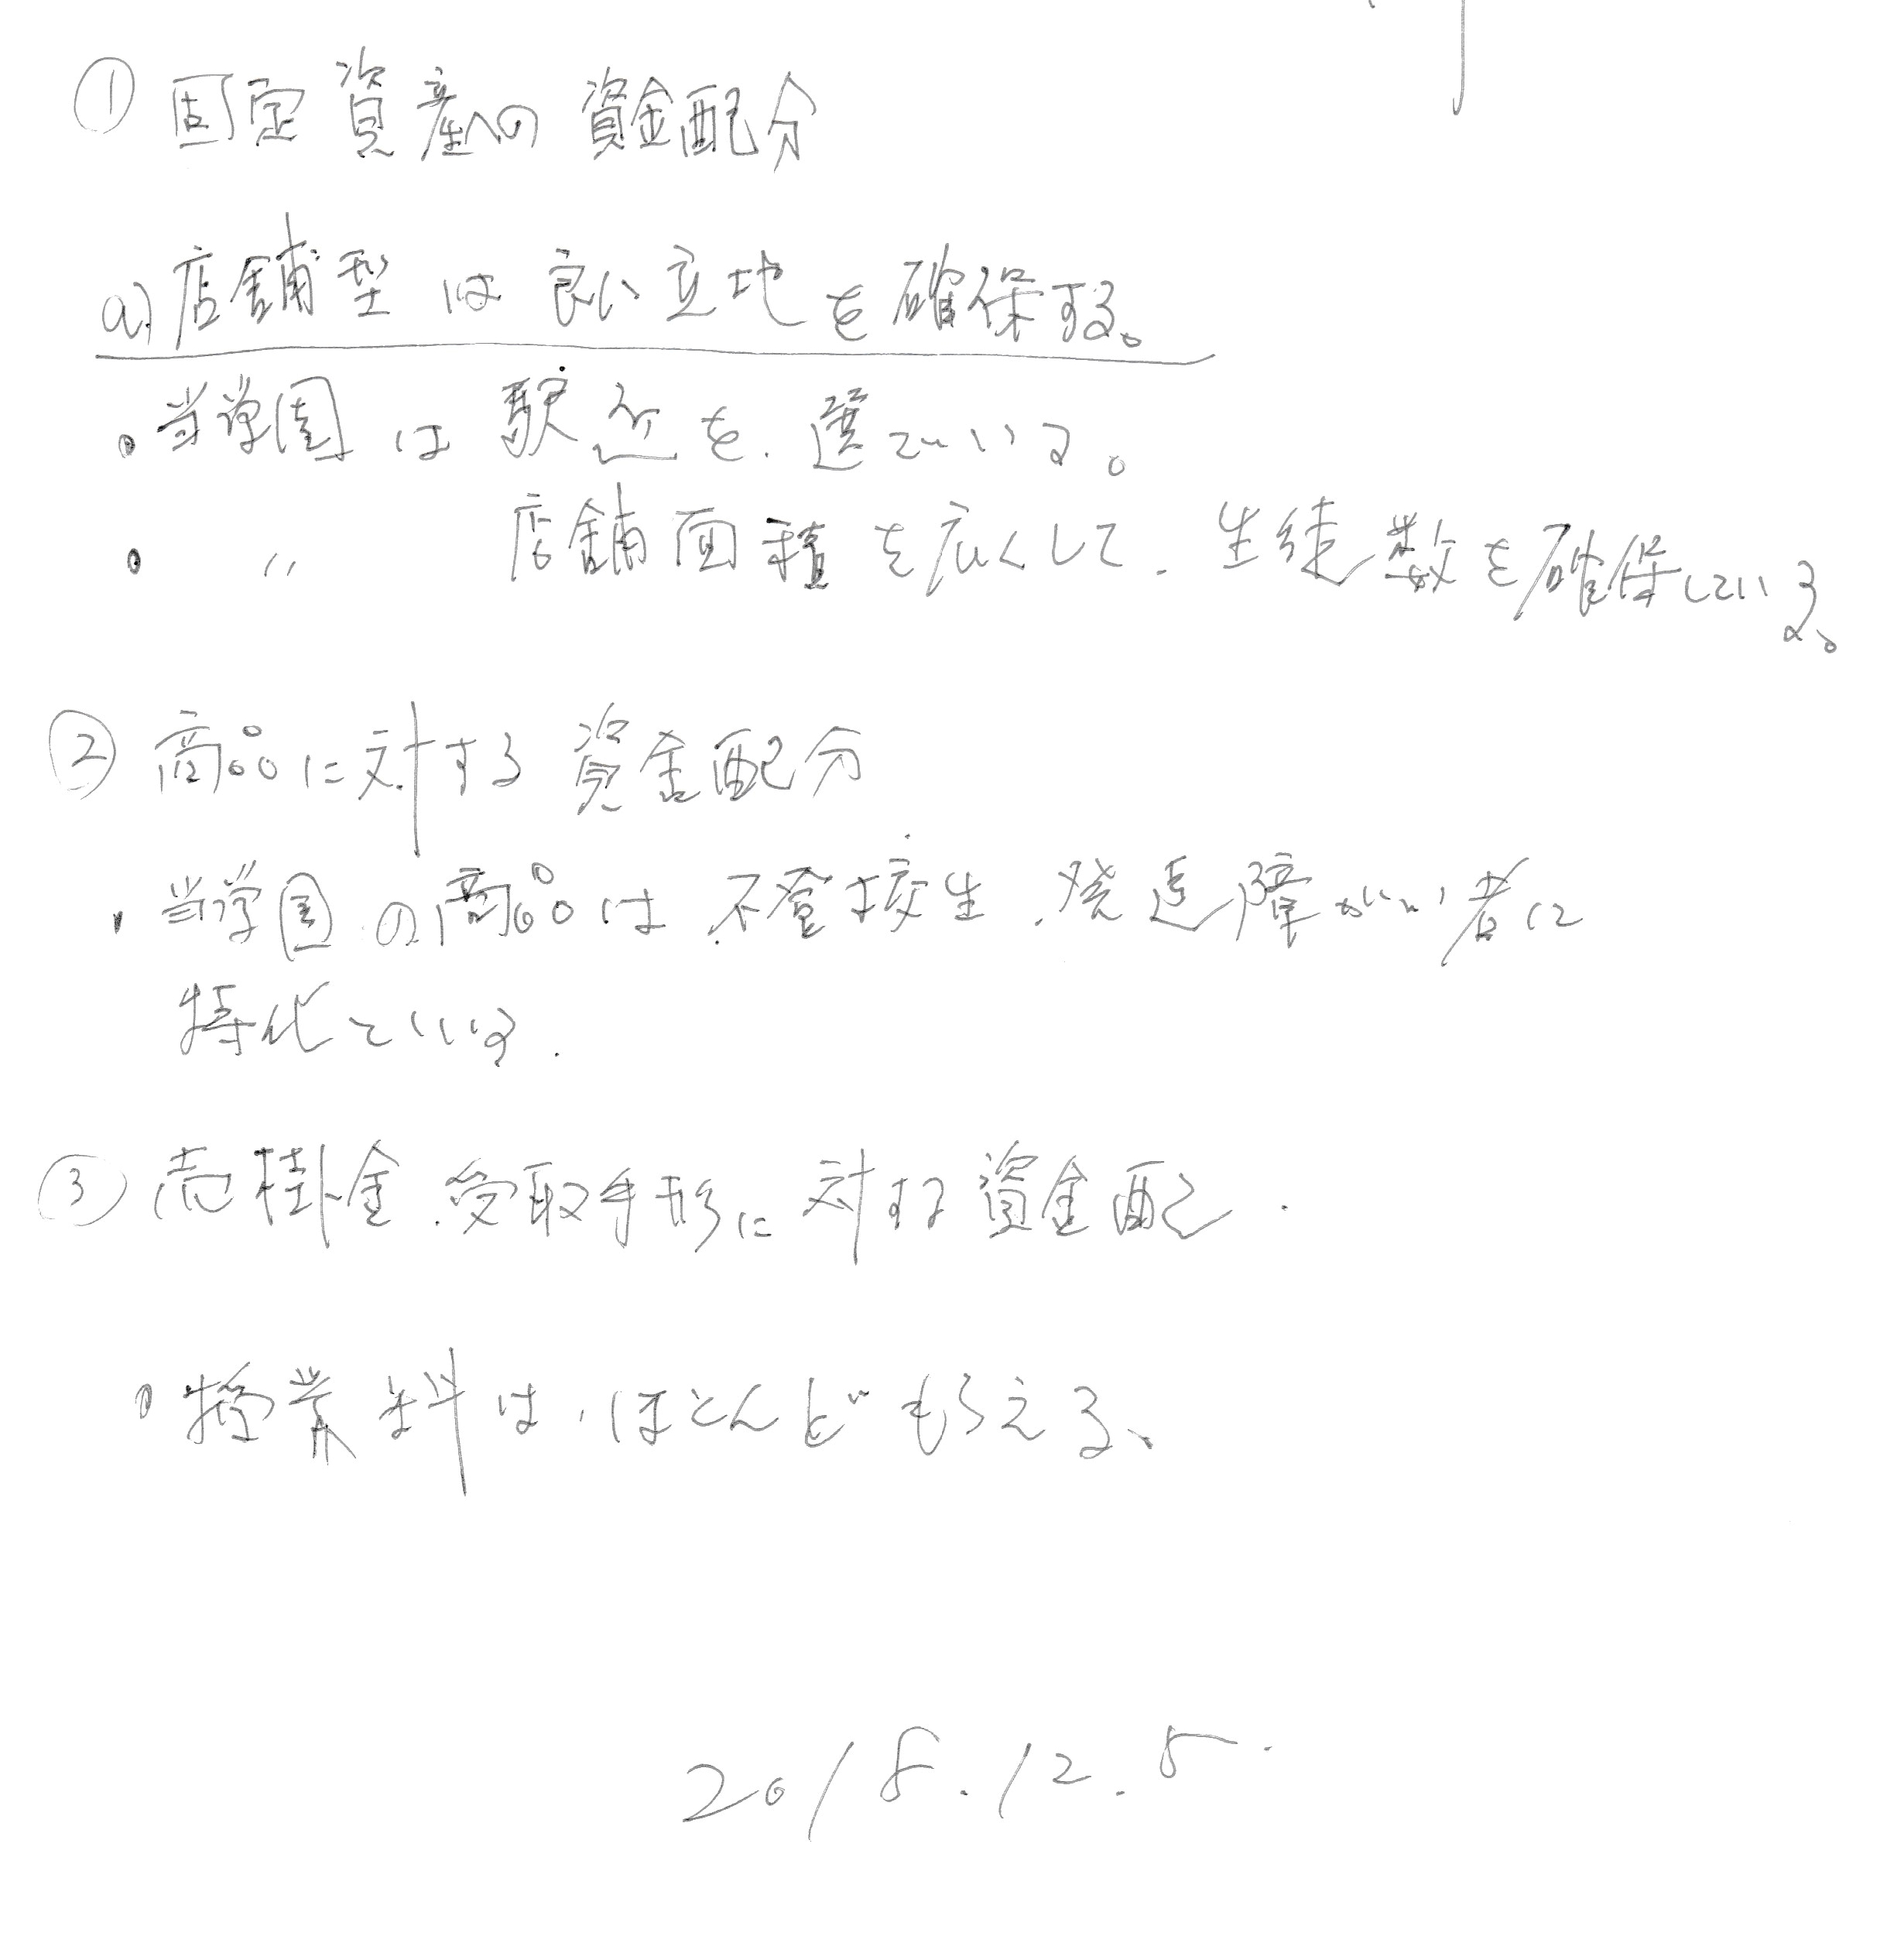 ① 固定資産への資金配分
a) 店舗型は良い立地を確保する。
・当学園は駅近を、選でいる。
・ 〃 店舗面積を広くして、生徒数を確保している。
② 商品に対する資金配分
・当学園の商品は不登校生、発達障がい者に
特化ている。
③ 売掛金、受取手形に対する資金配
・授業料は、ほとんどもらえる、
2018.12.5.